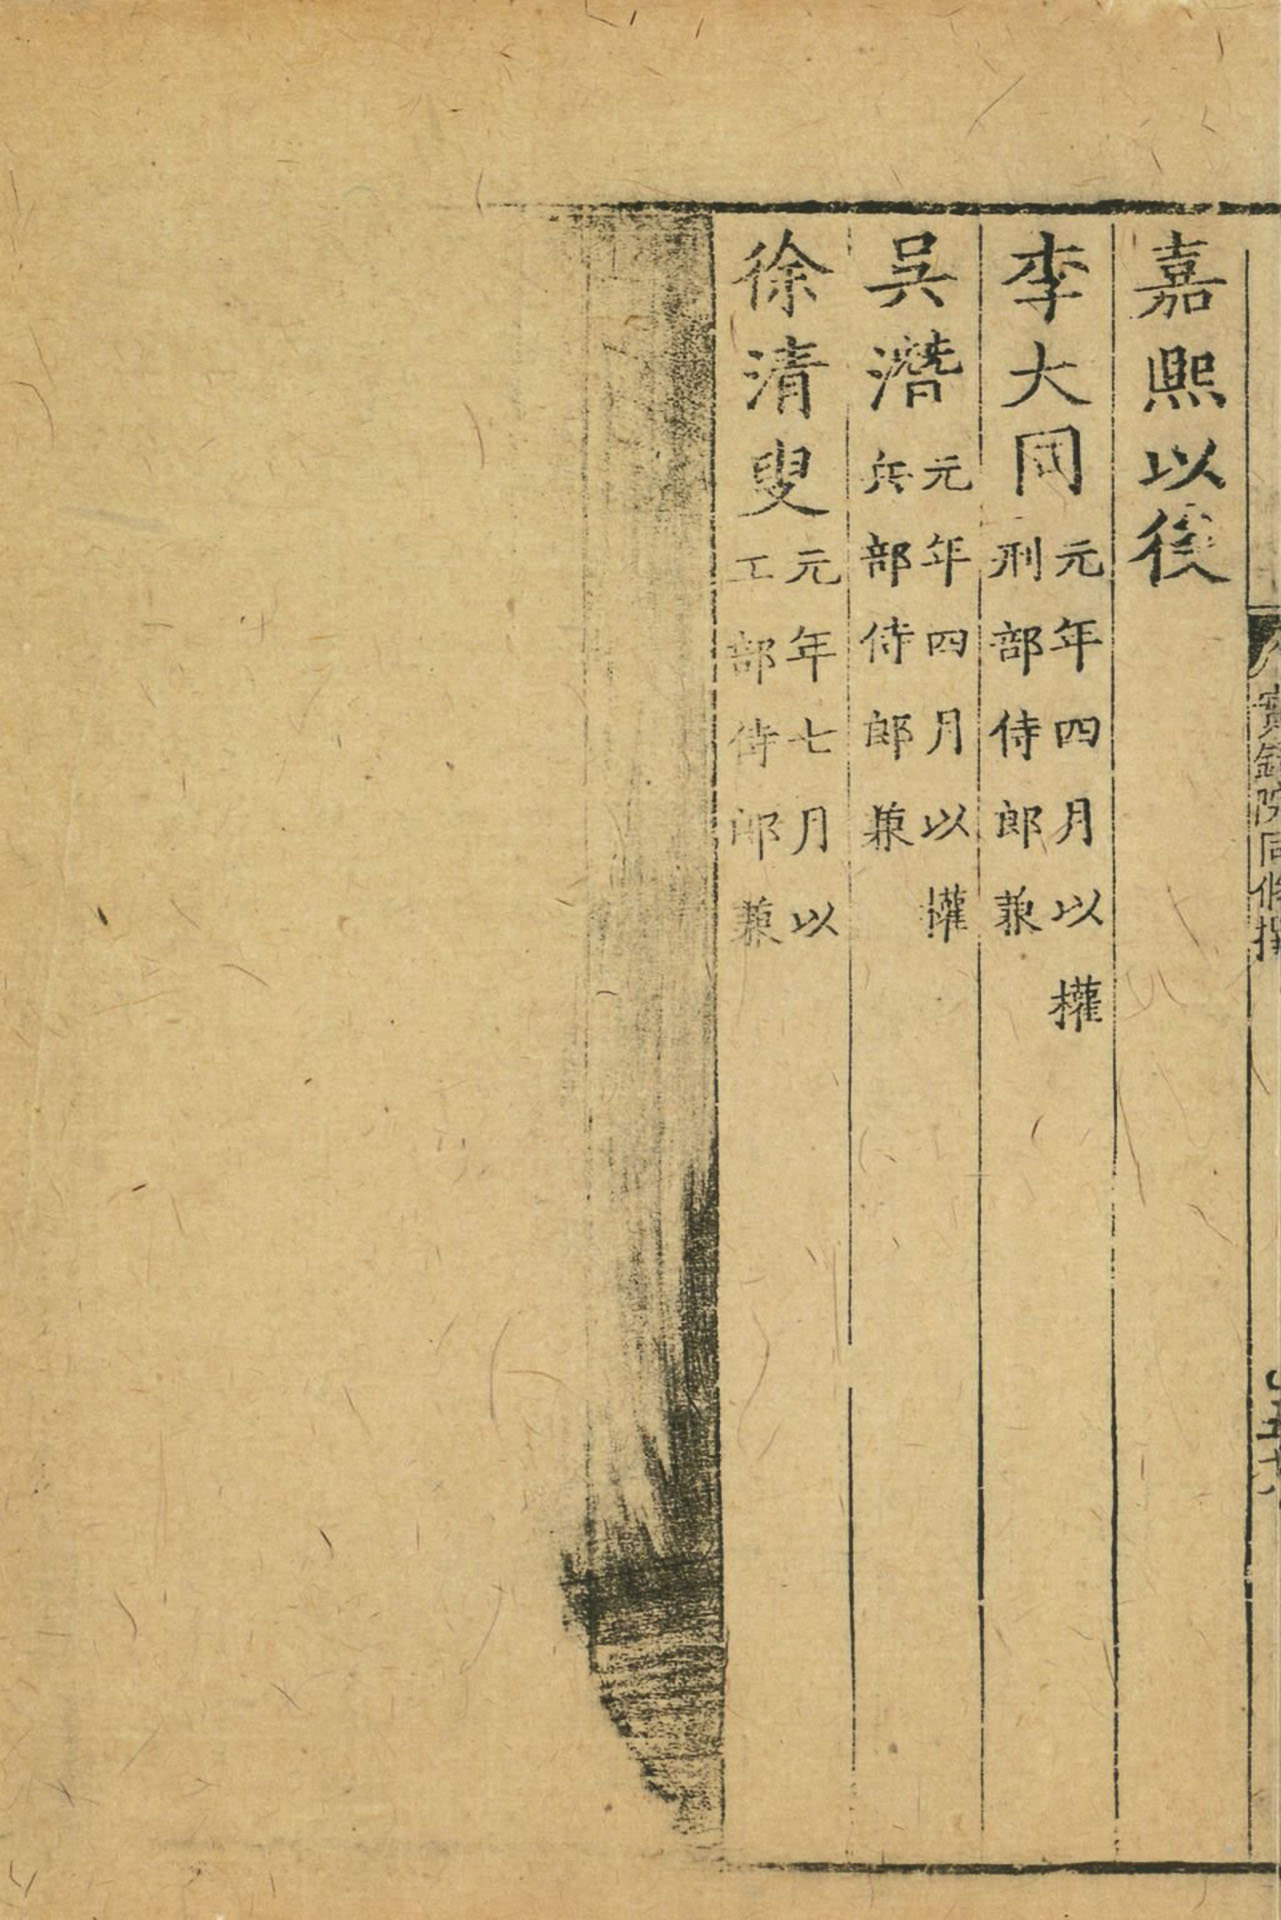 實錄院同修撰
嘉熙以後
李大同元年四月以權刑部侍郎兼
吳潛元年四月以權兵部侍郎兼
徐清叟元年七月以工部侍郎兼